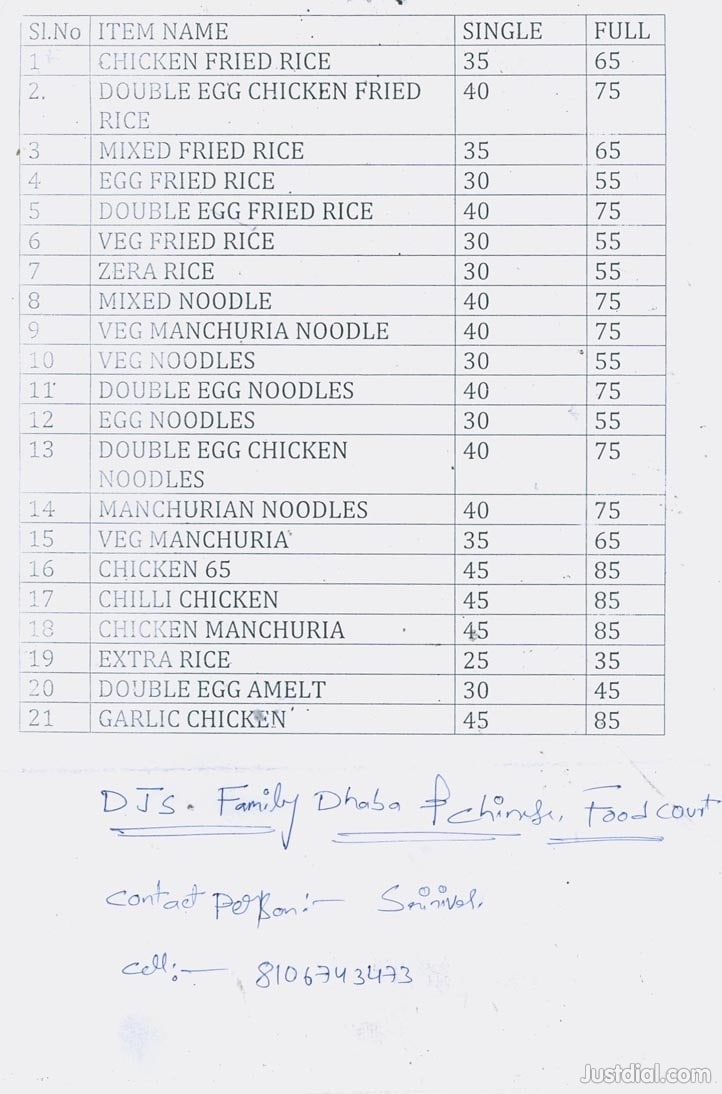 Sl.No ITEM NAME SINGLE FULL
1 CHICKEN FRIED RICE 35 65
2. DOUBLE EGG CHICKEN FRIED 40 75
RICE
3 MIXED FRIED RICE 35 65
4 EGG FRIED RICE 30 55
5 DOUBLE EGG FRIED RICE 40 75
6 VEG FRIED RICE 30 55
7 ZERA RICE 30 55
8 MIXED NOODLE 40 75
9 VEG MANCHURIA NOODLE 40 75
10 VEG NOODLES 30 55
11 DOUBLE EGG NOODLES 40 75
12 EGG NOODLES 30 55
13 DOUBLE EGG CHICKEN 40 75
NOODLES
14 MANCHURIAN NOODLES 40 75
15 VEG MANCHURIA 35 65
16 CHICKEN 65 45 85
17 CHILLI CHICKEN 45 85
18 CHICKEN MANCHURIA 45 85
19 EXTRA RICE 25 35
20 DOUBLE EGG AMELT 30 45
21 GARLIC CHICKEN 45 85
DJS. Family Dhaba & Chinese, Food court
Contact person:-
Cell:- 8106743473
Justdial.com